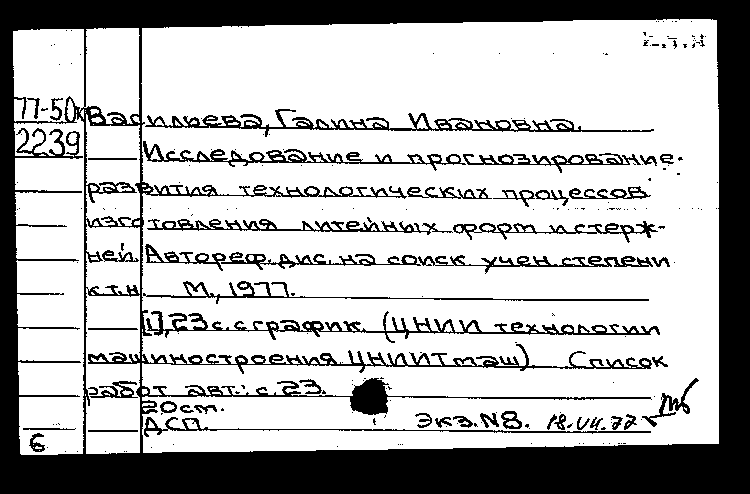 к.т.н
77-50к Васильева, Галина Ивановна.
2239 Исследование и прогнозирование
развития технологических процессов
изготовления литейных форм и стерж-
ней. Автореф. дис. на соиск учен. степени
к.т.н. М., 1977.
[1], 23 с. с график. (ЦНИИ технологии
машиностроения ЦНИИТмаш). Список
работ авт.: с. 23.
20 см.
ДСП. Экз. N8. 18.VII.77
6